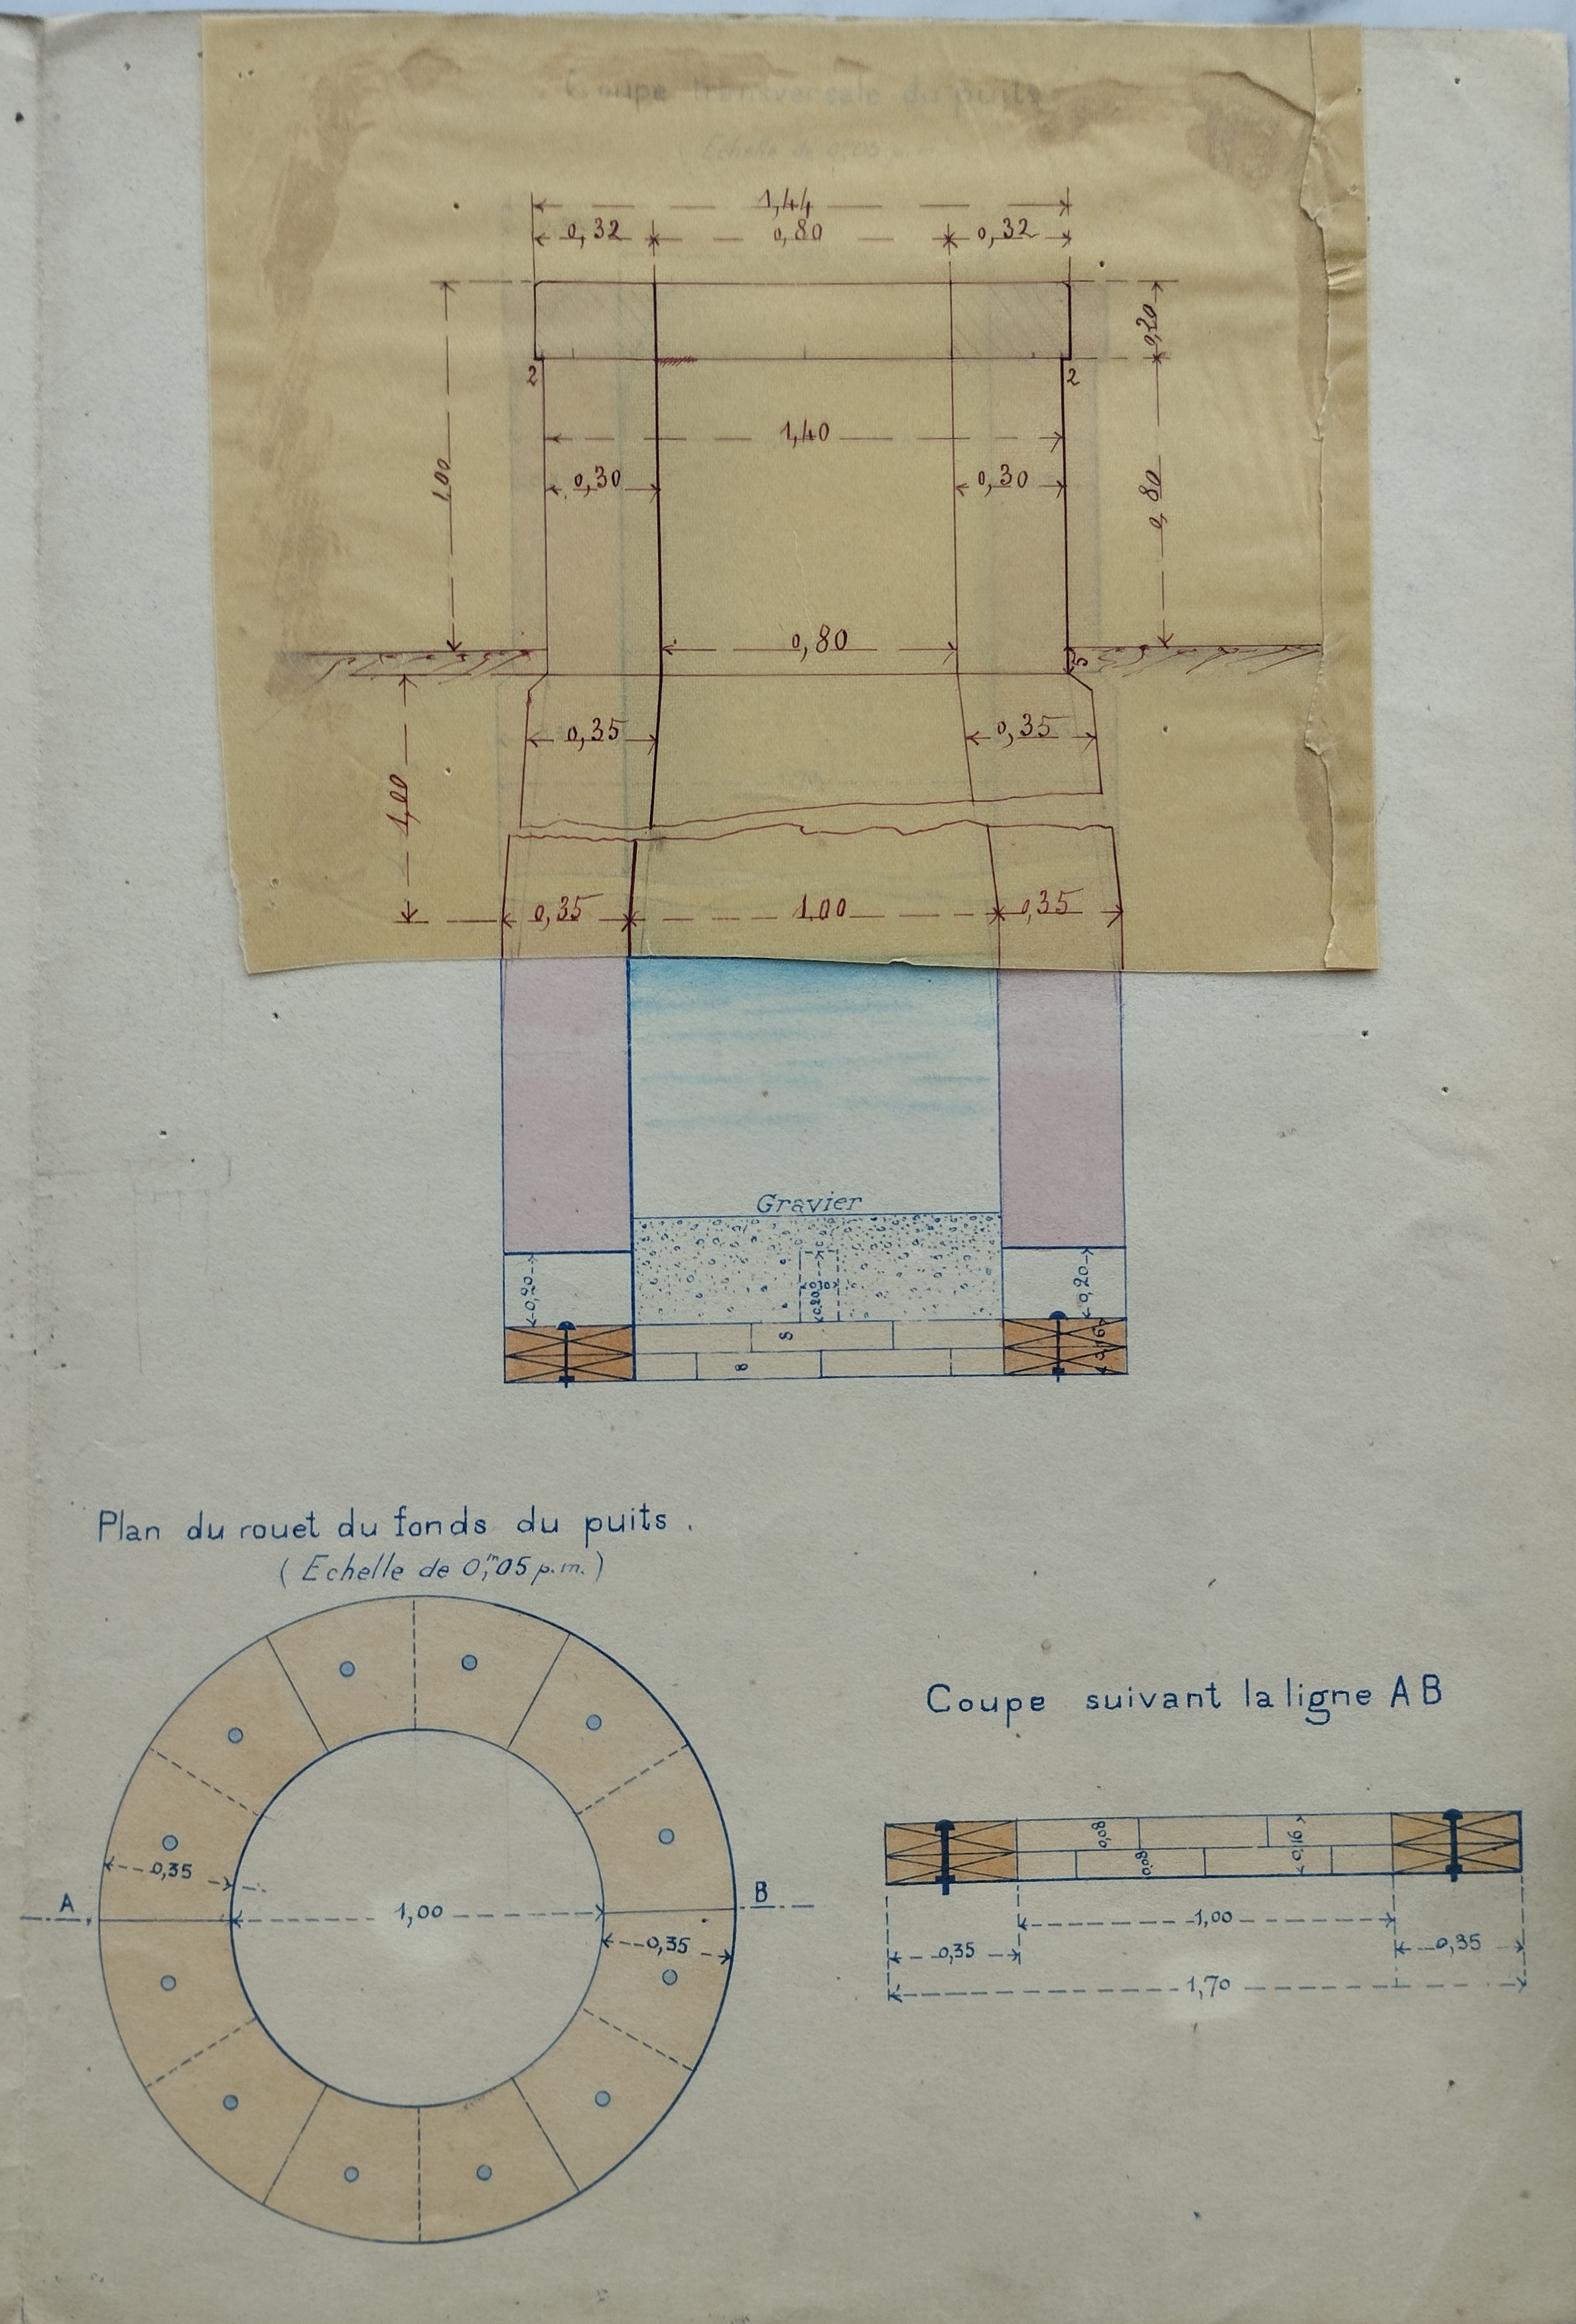 Coupe transversale du puits
(Echelle de 0,05 p.m.)
1,44
0,32 0,80 0,32
0,20
2 2
1,40
1,00
0,30 0,30
0,80
0,80
5
0,35 0,35
1,00
0,35 1,00 0,35
Gravier
0,20 0,20 0,20
0,16
8
8
Plan du rouet du fonds du puits.
(Echelle de 0,m05 p.m.)
Coupe suivant la ligne AB
0,08 0,16
0,08
0,35
A B
1,00
0,35
1,00
0,35 0,35
1,70